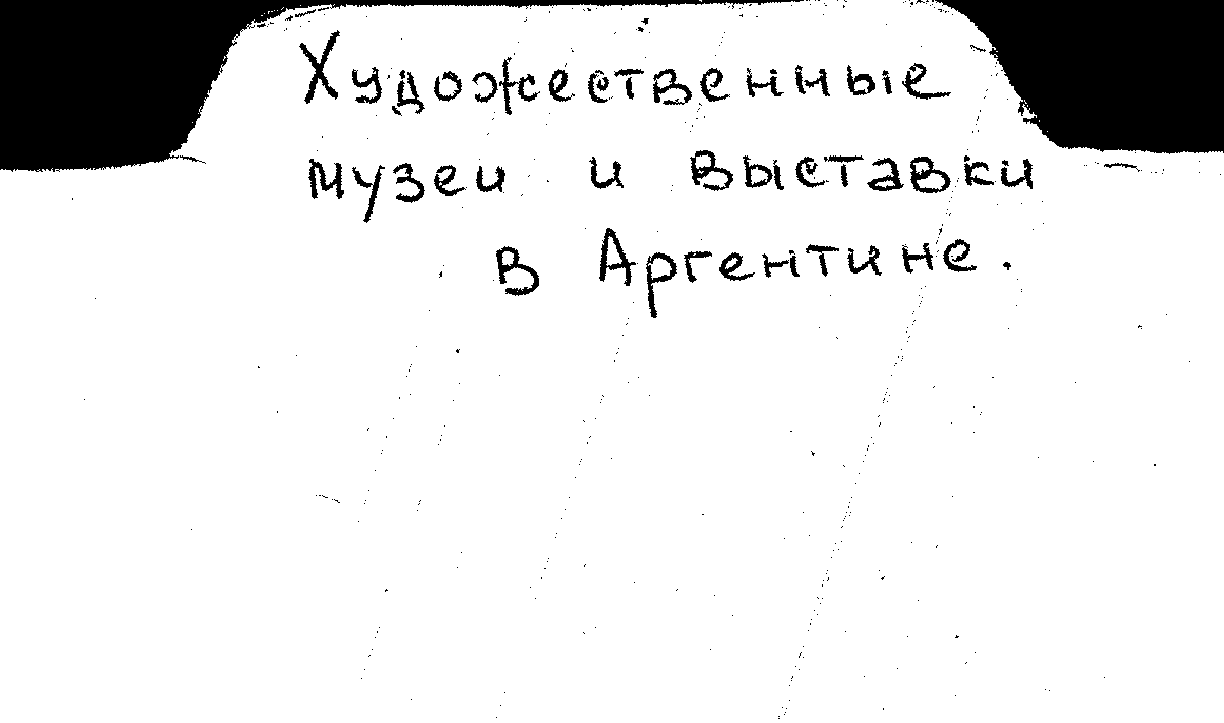 Художественные
музеи и выставки
в Аргентине.